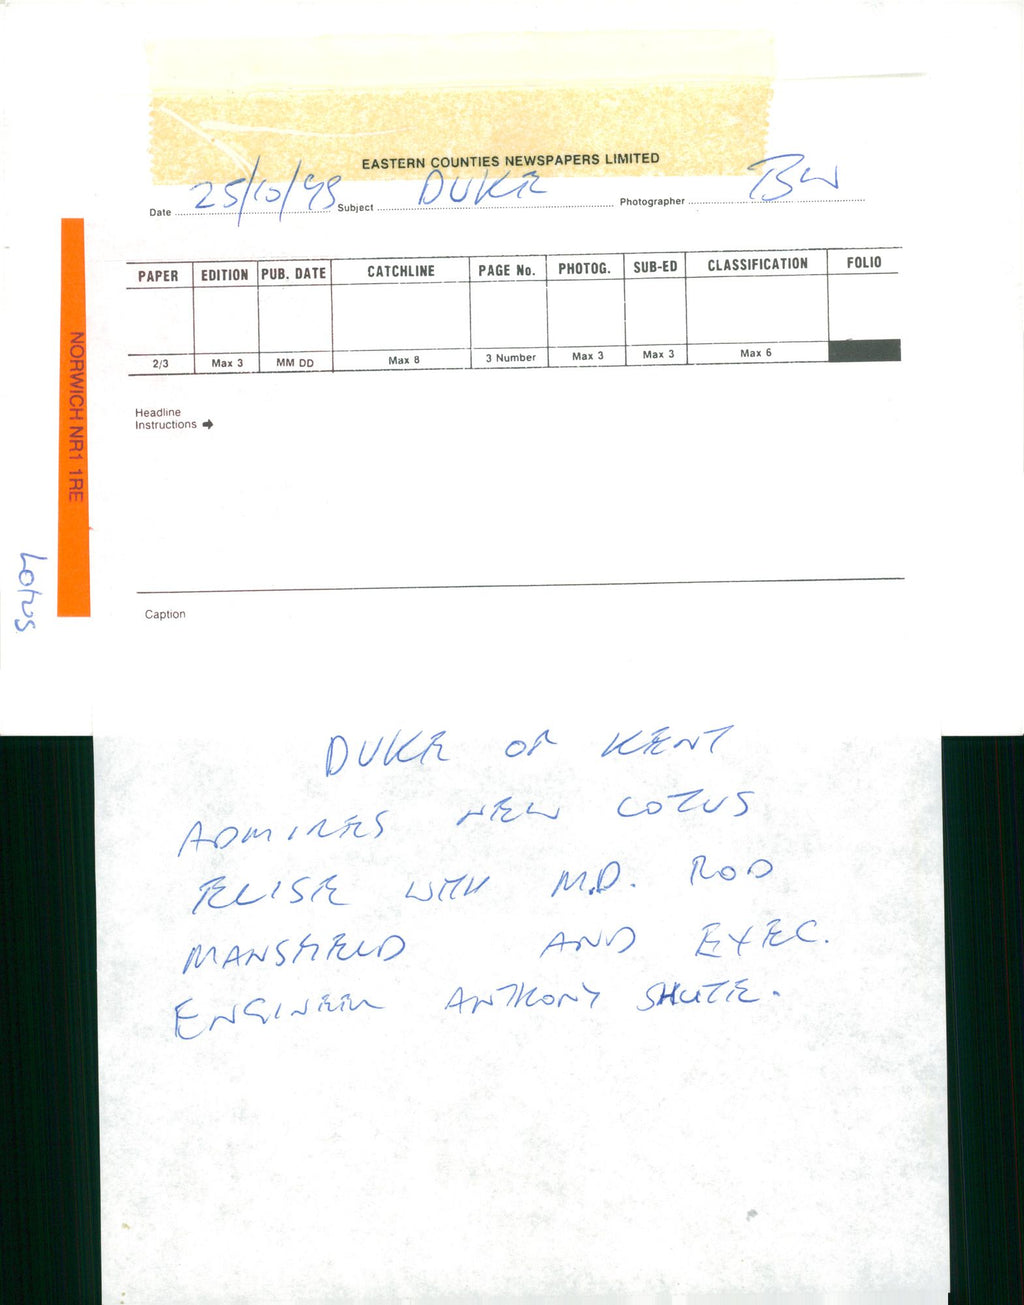 EASTERN COUNTIES NEWSPAPERS LIMITED
Date 25/10/95 Subject DUKE Photographer BW
PAPER EDITION PUB. DATE CATCHLINE PAGE No. PHOTOG. SUB-ED CLASSIFICATION FOLIO
2/3 Max 3 MM DD Max 8 3 Number Max 3 Max 3 Max 6
Headline
Instructions
NORWICH NR1 1RE
Lotus
Caption
DUKE OF KENT
ADMIRES NEW LOTUS
ELISE WITH M.D. ROD
MANSFIELD AND EXEC.
ENGINEER ANTHONY SHUTE.